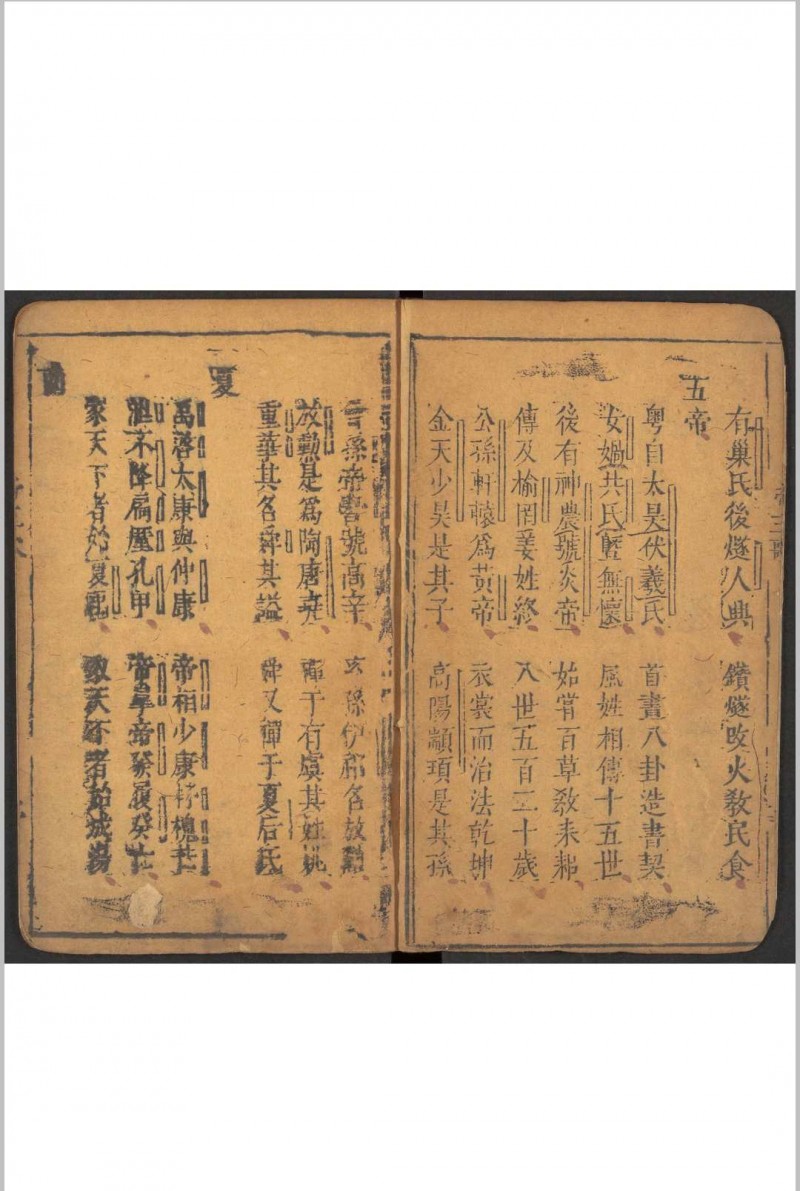 有巢氏後燧人典 鑽燧改火教民食
五帝
粤自太昊伏羲氏 首畫八卦造書契
女媧共氏曁無懷 風姓相傳十五世
後有神農號炎帝 始嘗百草教耒耜
傳及榆罔姜姓終 八世五百二十歲
公孫軒轅爲黃帝 衣裳而治法乾坤
金天少昊是其子 高陽顓頊是其孫
孫帝嚳號高辛 玄孫伊祁名放勳
放勳是爲陶唐堯 禪于有虞其姓姚
重華其名舜其謚 舜又禪于夏后氏
夏
禹啓太康與仲康 帝相少康杼槐芒
泄不降扃廑孔甲 帝皐帝發履癸亡
家天下者始夏 天下者始成湯
商